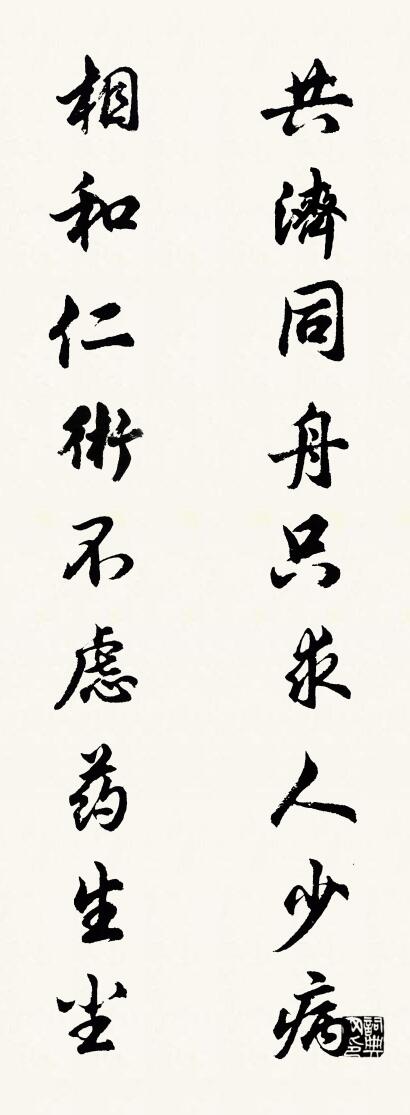 共濟同舟只求人少病
相和仁術不慮药生尘